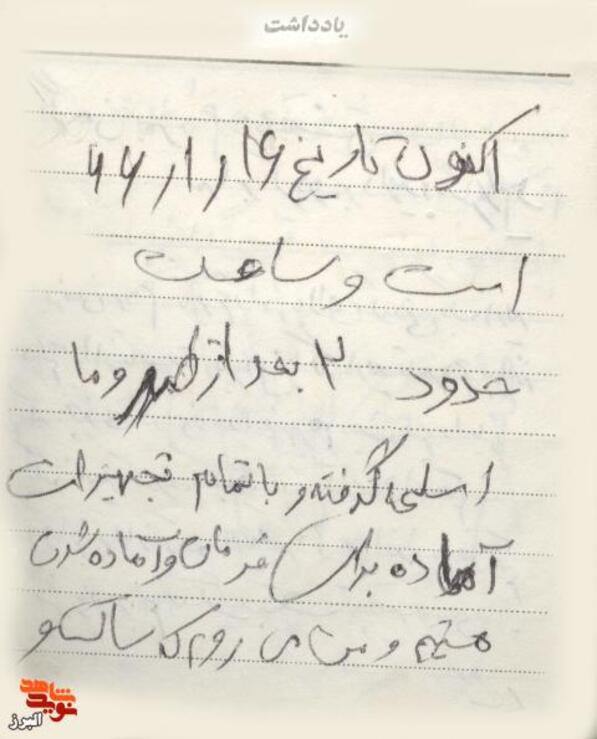 یادداشت
اکنون تاریخ ۱۶/۱/۶۶
است و ساعت
حدود ۲ بعد از ظهر و ما
اسلحه گرفته و با تمام تجهیزات
آماده برای فرمان و آماده شدن
هستیم و من می روم که ساکم و
نوید شاهد
البرز